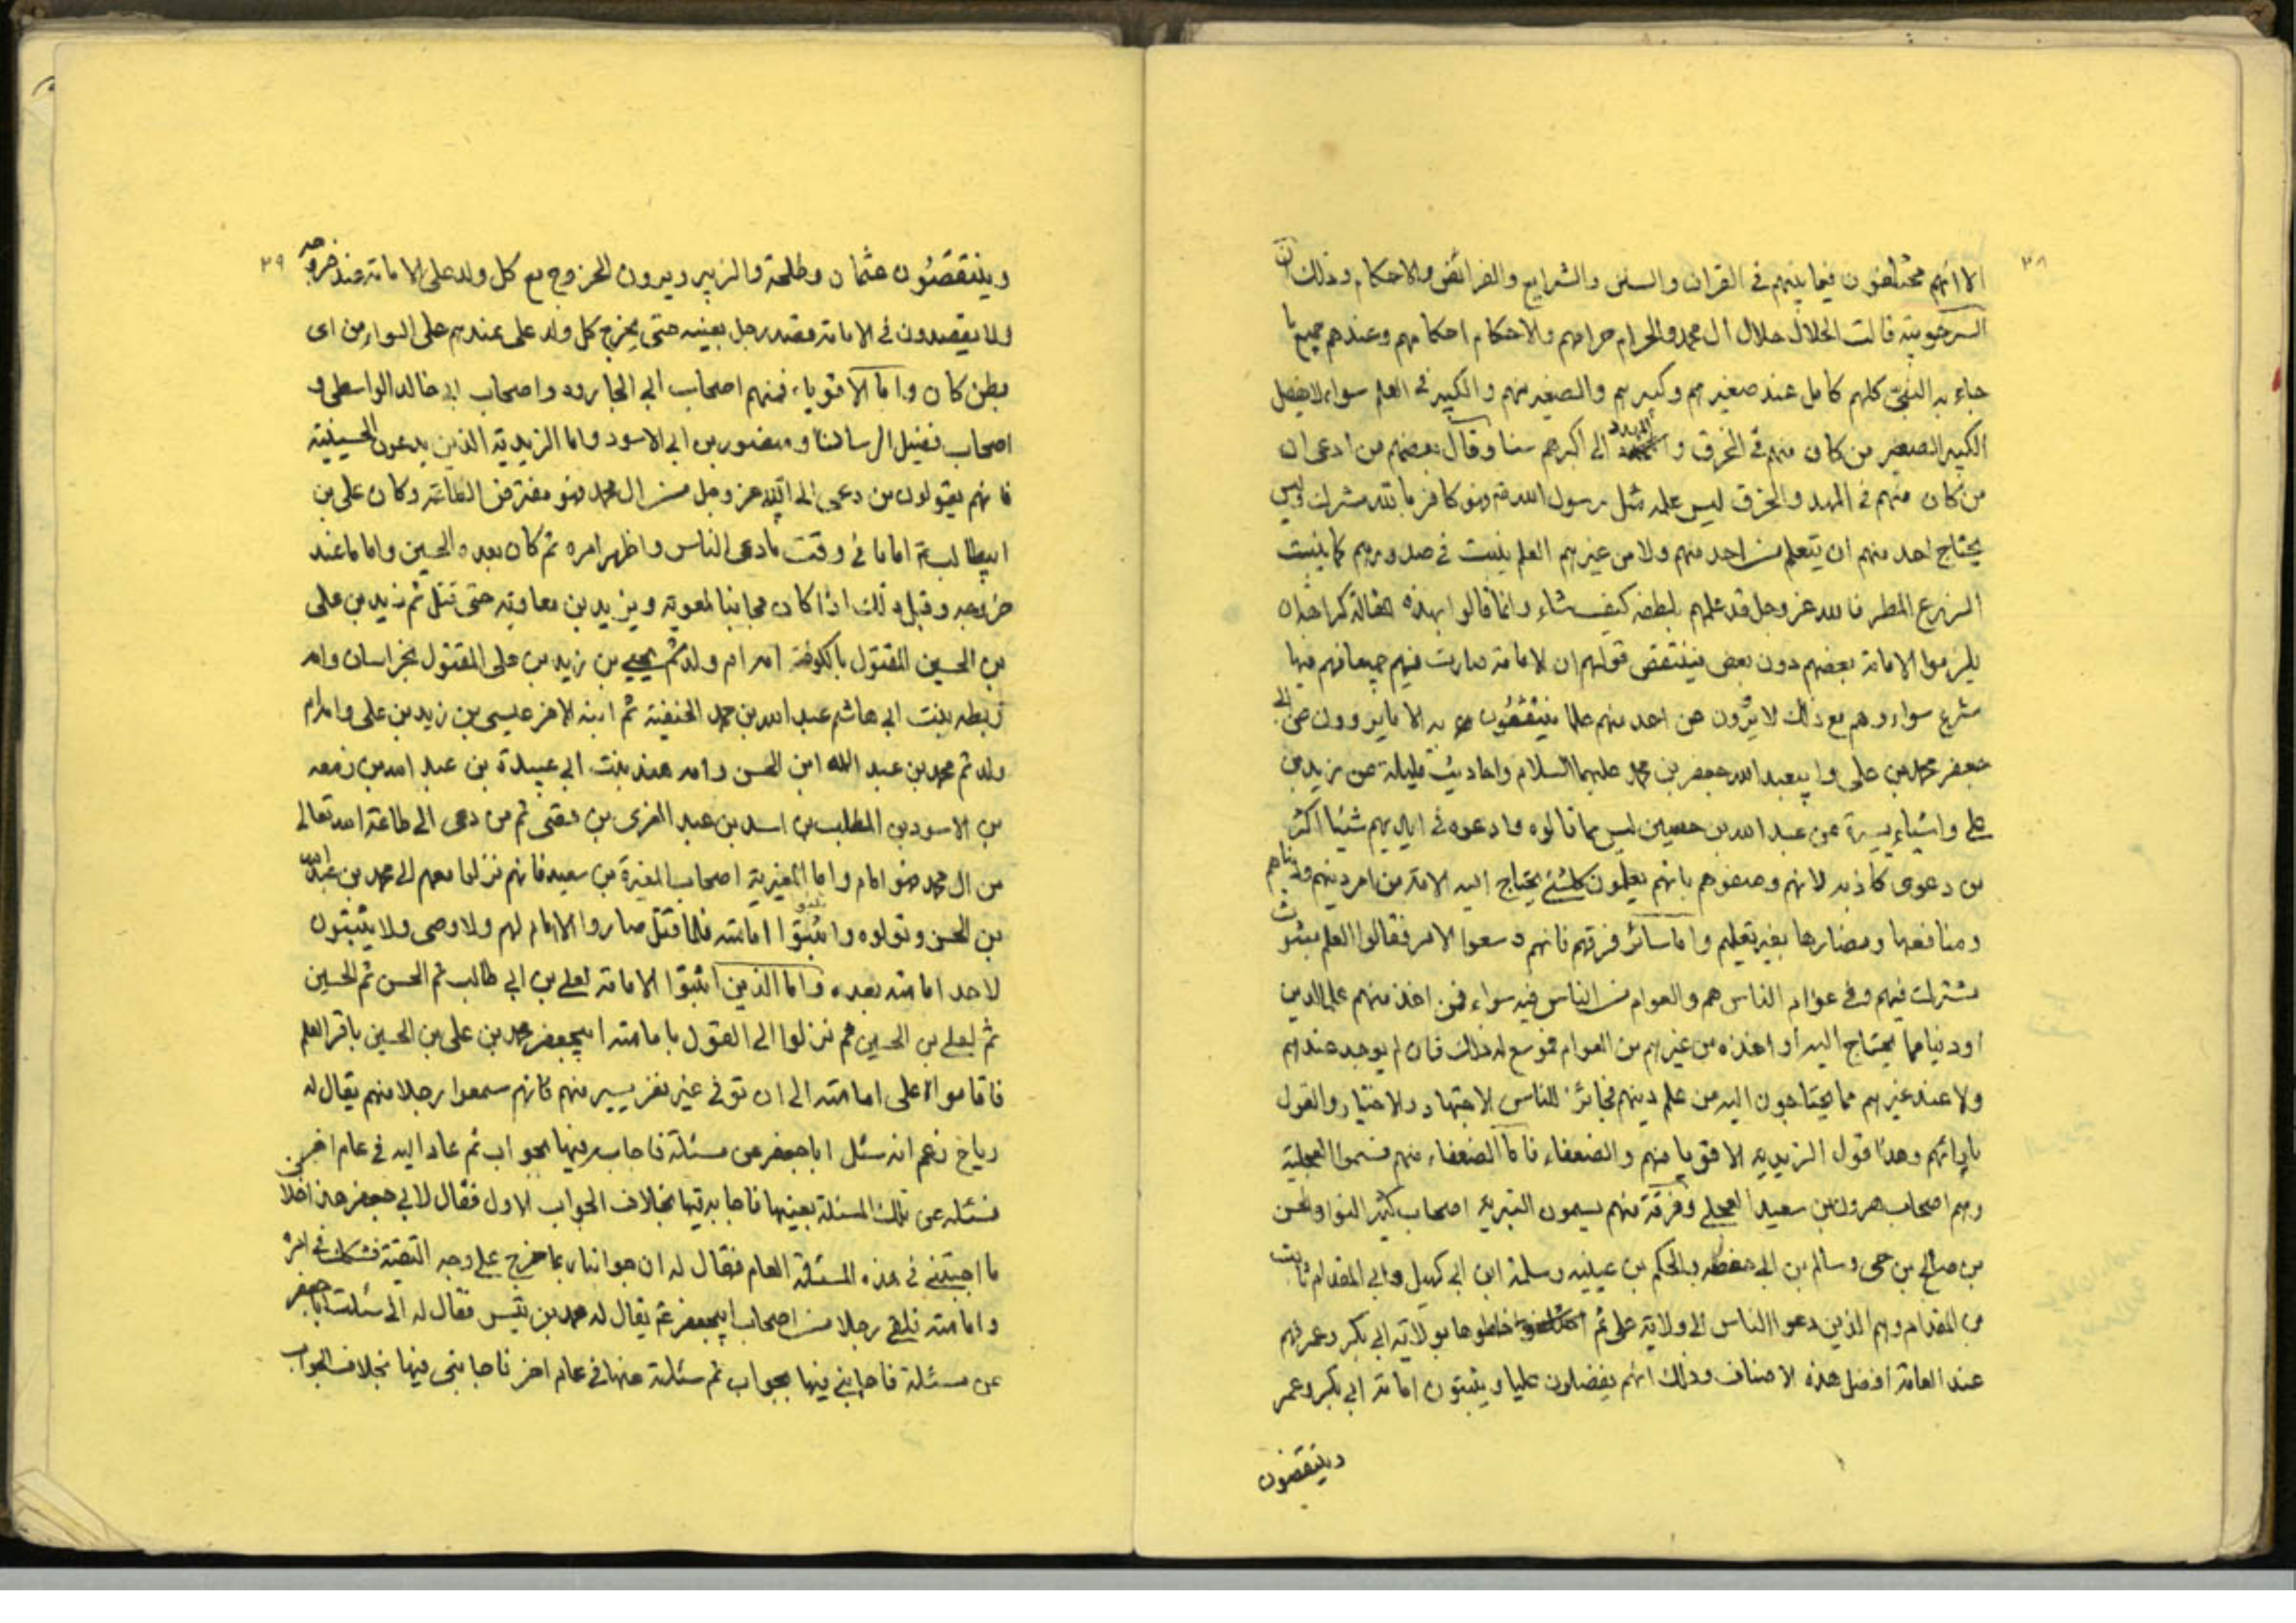 ٣٨
الا انهم مختلفون فيما بينهم في القران والسنن والشرايع والفرائض والاحكام وذلك ان
السرحوبية قالت الحلال حلال ال محمد والحرام حرامهم والاحكام احكامهم وعندهم جميع ما
جاء به النبي كلهم كامل عند صغيرهم وكبيرهم والصغير منهم والكبير في العلم سواء لا يفضل
الكبير الصغير من كان منهم في الخرق و المهد الى اكبرهم سنا وقال بعضهم من ادعى ان
من كان منهم في المهد والخرق ليس علمه مثل رسول الله فهو كافر بالله مشرك وليس
يحتاج احد منهم ان يتعلم من احد منهم ولا من غيرهم العلم ينبت في صدورهم كما ينبت
الزرع المطر فالله عز وجل قد علمهم بلطفه كيف شاء وانما قالوا بهذه المقالة كراهة ان
يلزموا الامامة بعضهم دون بعض فينتقض قولهم ان الامامة صارت فيهم جميعا فهم فيها
شرع سواء وهم مع ذلك لا يروون عن احد منهم علما ينتفعون به الا ما يروون عن ابي
جعفر محمد بن علي وابيعبد الله جعفر بن محمد عليهما السلام واحاديث قليلة عن زيد بن
علي واشياء يسيرة عن عبد الله بن حسين ليس مما قالوه وادعوه في ايديهم شيئا اكثر
من دعوى كاذبه لانهم وصفوهم بانهم يعلمون كلشئ يحتاج اليه الامة من امر دينهم ودنياهم
ومنافعها ومضارها بغير تعليم واما سائر فرقهم فانهم وسعوا الامر فقالوا العلم مبثوث
مشترك فيهم وفي عوام الناس هم والعوام من الناس فيه سواء فمن اخذ منهم علما لدين
او دنيا مما يحتاج اليه أو اخذه من غيرهم من العوام فموسع له ذلك فان لم يوجد عندهم
ولا عند غيرهم مما يحتاجون اليه من علم دينهم فجائز للناس الاجتهاد والاختيار والقول
بارائهم وهذا قول الزيديه الاقويا منهم والضعفاء فاما الضعفاء منهم فسموا العجلية
وهم اصحاب هرون بن سعيد العجلي وفرقة منهم يسمون البترية اصحاب كثير النوا والحسن
بن صالح بن حى وسالم بن ابي حفصه والحكم بن عيينه وسلمة ابن ابي كهيل وابي المقدام ثابت
من المقدام وهم الذين دعوا الناس الى ولاية علي ثم خلطوها بولاية ابي بكر وعمر فهم
عند العامة افضل هذه الاصناف وذلك انهم يفضلون عليا ويثبتون امامة ابي بكر وعمر
وينتقصون
٣٩
وينتقصون عثمان وطلحة والزبير ويرون الخروج مع كل ولد علي الامامة عند خروجه
ولا يقصدون في الامامة قصد رجل بعينه حتى يخرج كل ولد على عندهم على السواء من اى
بطن كان واما الاقوياء فمنهم اصحاب ابي الجارود واصحاب ابي خالد الواسطي و
اصحاب فضيل الرسان ومنصور بن ابي الاسود واما الزيدية الذين يدعون الحسينية
فانهم يقولون من دعى الى الله عز وجل من ال محمد فهو مفترض الطاعة وكان علي بن
ابيطالب اماما في وقت ما دعى الناس واظهر امره ثم كان بعده الحسين واماما عند
خروجه وقبل ذلك اذا كان مجانبا لمعوية ويزيد بن معاوية حتى قتل ثم زيد بن علي
بن الحسين المقتول بالكوفة امه ام ولد ثم يحيى بن زيد بن علي المقتول بخراسان وامه
ريطه بنت ابي هاشم عبد الله بن محمد الحنفية ثم ابنه الاخر عيسى بن زيد بن علي وامه ام
ولد ثم محمد بن عبد الله ابن الحسن وامه هند بنت ابي عبيدة بن عبد الله بن زمعه
بن الاسود بن المطلب بن اسد بن عبد العزى بن قصى ثم من دعى الى طاعة الله تعالى
من ال محمد فهو امام واما المغيرية اصحاب المغيرة بن سعيد فانهم نزلوا معهم الى محمد بن عبد الله
بن الحسن وتولوه واثبتوا امامته فلما قتل صاروا لا امام لهم ولا وصى ولا يثبتون
لاحد امامته بعده واما الذين اثبتوا الامامة لعلي بن ابي طالب ثم الحسن ثم الحسين
ثم لعلي بن الحسين ثم نزلوا الى القول بامامته ابيجعفر محمد بن علي بن الحسين باقر العلم
فاقاموا على امامته الى ان توفى غير نفر يسير منهم فانهم سمعوا رجلا منهم يقال له
رياح زعم انه سئل ابا جعفر عن مسئلة فاجابه فيها بجواب ثم عاد اليه في عام اخر
فسئله عن تلك المسئلة بعينها فاجابه فيها بخلاف الجواب الاول فقال لابي جعفر هذا خلاف
ما اجبتني في هذه المسئلة العام فقال له ان جوابنا ربما خرج على وجه التقية فشكك في امره
وامامته فلقى رجلا من اصحاب ابيجعفر يقال له محمد بن قيس فقال له انى سئلت ابا جعفر
عن مسئلة فاجابني فيها بجواب ثم سئلته عنها في عام اخر فاجابني فيها بخلاف الجواب